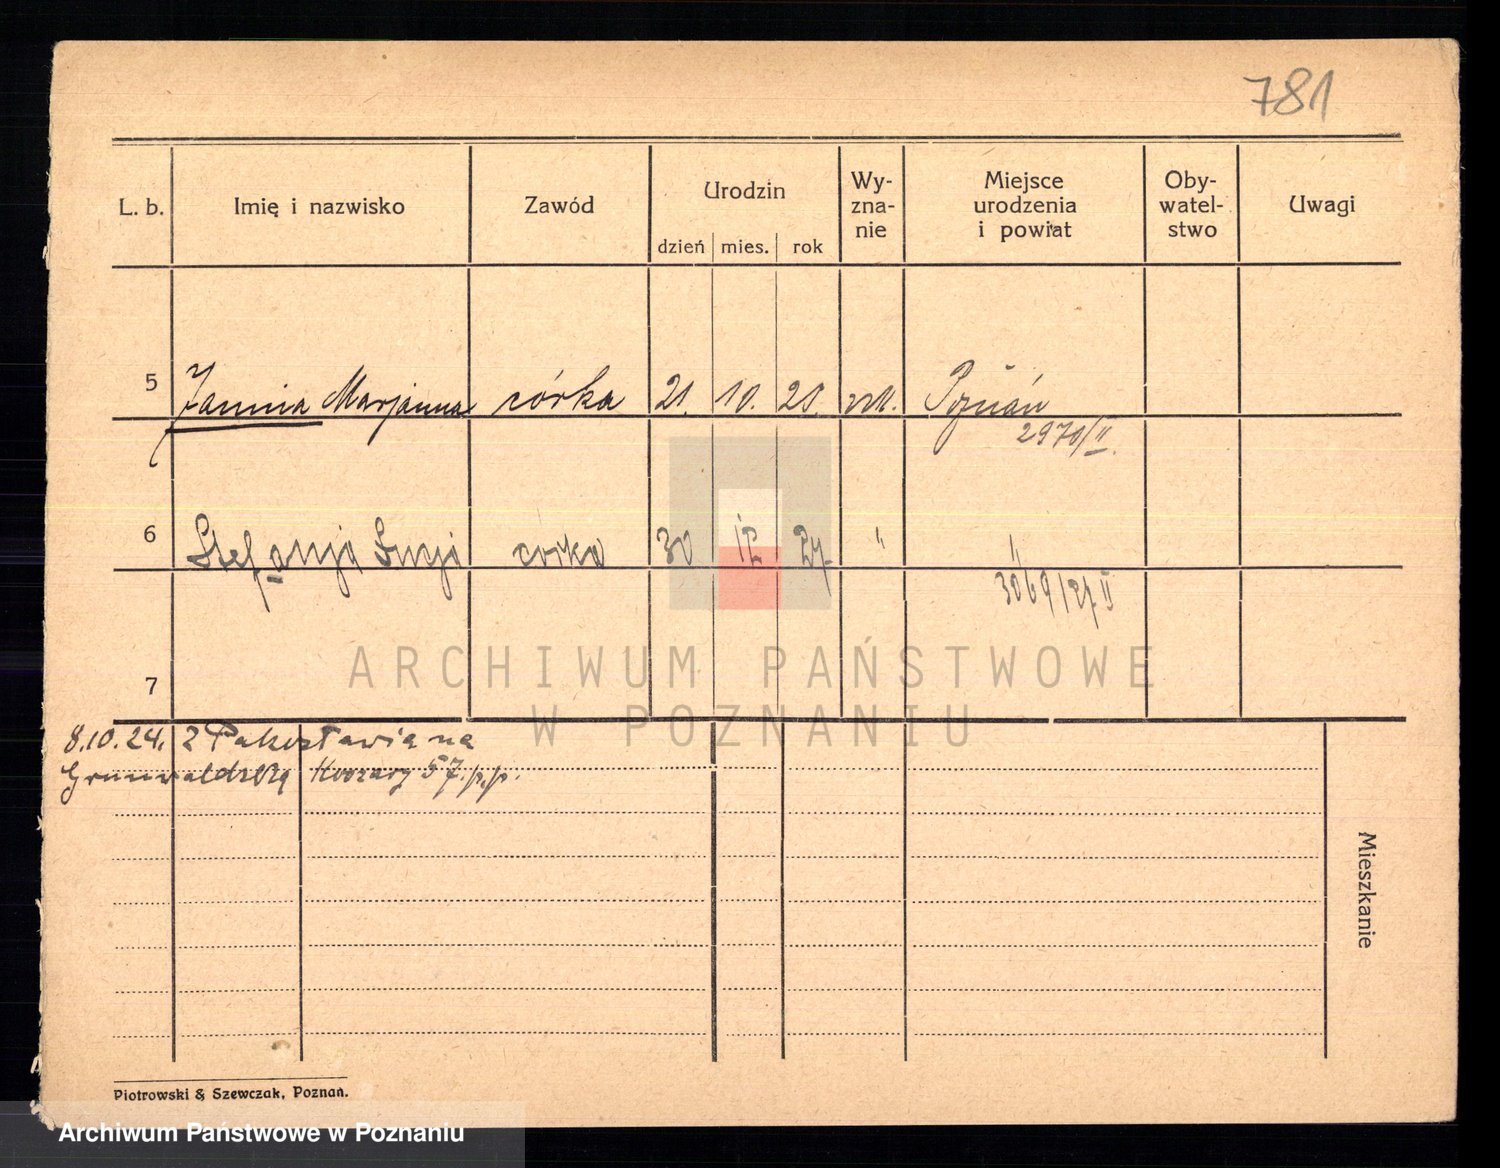 781
L. b. Imię i nazwisko Zawód Urodzin dzień mies. rok Wy- zna- nie Miejsce urodzenia i powiat Oby- watel- stwo Uwagi
5 Janina Marjanna córka 21. 10. 25. Poznań
2970/II.
6 Stefanja córka 30 12 27. " "
3069/27 II
7
8.10.24. z Pakosławia na
Grunwaldzką Koszary 57. p.p.
Mieszkanie
Piotrowski & Szewczak, Poznań.
ARCHIWUM PAŃSTWOWE
W POZNANIU
Archiwum Państwowe w Poznaniu